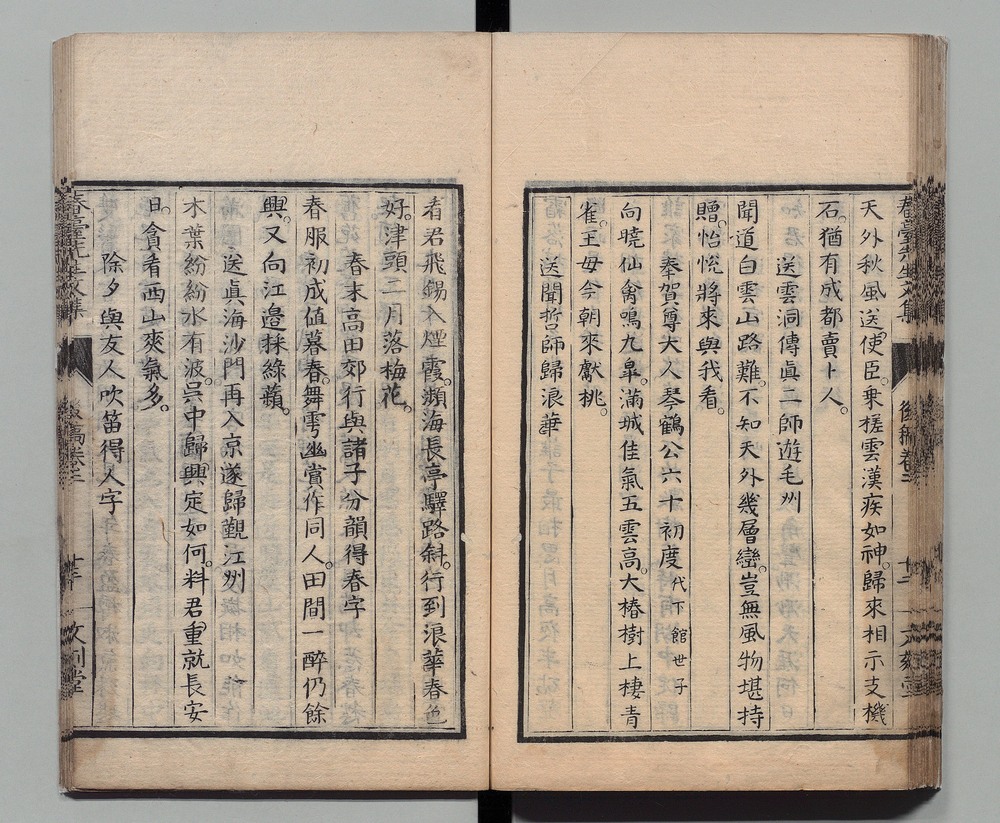 天外秋風送使臣。乗槎雲漢疾如神。歸來相示支機
石。猶有成都賣卜人。
送雲洞傳眞二師遊毛州
聞道白雲山路難。不知天外幾層巒。豈無風物堪持
贈。怡恱將來與我看。
奉賀尊大人琴鶴公六十初度代下館世子
向曉仙禽鳴九皐。滿城佳氣五雲高。大椿樹上棲青
雀。王母今朝來獻桃。
送聞哲師歸浪華
看君飛錫入煙霞。瀕海長亭驛路斜。行到浪華春色
好。津頭二月落梅花。
春末高田郊行與諸子分韻得春字
春服初成値暮春。舞雩幽賞作同人。田間一醉仍餘
興。又向江邉採綠蘋。
送眞海沙門再入京遂歸觀江州
木葉紛紛水有波。呉中歸興定如何。料君重就長安
日。貪看西山爽氣多。
除夕與友人吹笛得人字